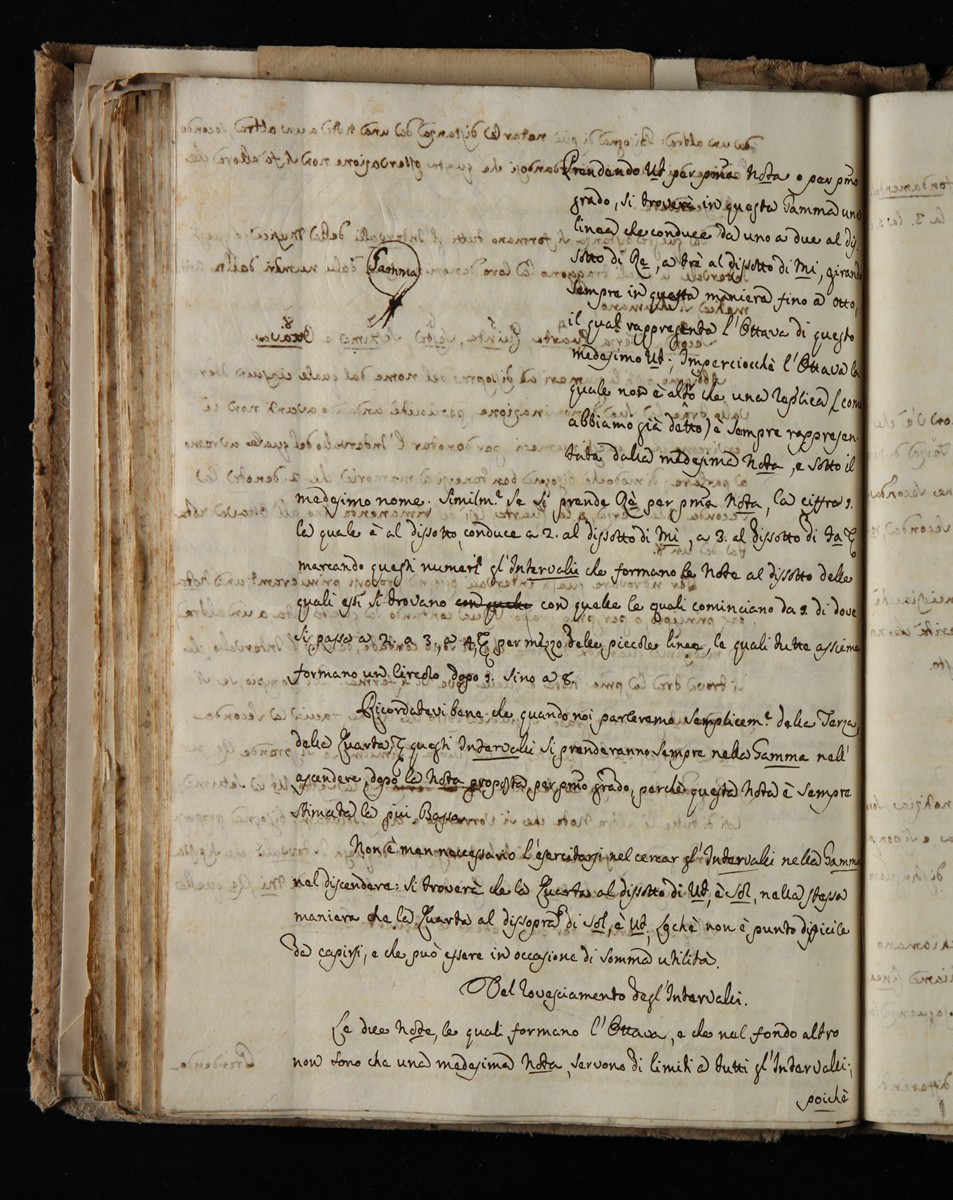 Gamma
Prendendo Ut per pma Nota o per pmo
grado, si troverà in questa Gamma una
linea che conduce da uno a due al dis-
sotto di Re, a trè al dissotto di Mi, girando
sempre in questa maniera fino à otto,
il qual rappresenta l'Ottava di questo
medesimo Ut; Imperciocchè l'Ottava la
quale non è altro che una Replica (come
abbiamo già detto) è sempre rappresen-
tata dalla medesima Nota, e sotto il
medesimo nome. Similm.e se si prende Rè per pma Nota, la ciffra 1.
la quale è al dissotto, conduce a 2. al dissotto di Mi, a 3. al dissotto di fa &
marcando questi numeri gl'Intervalli che formano le Note al dissotto delle
quali essi si trovano con quelle con quelle le quali cominciano da 1. di dove
si passa a 2. a 3. a 4. & per mezzo delle piccole linee, le quali tutte assieme
formano un Circolo dopo 1. sino a 8.
Ricordatevi bene, che quando noi parleremo semplicem.e della Terza
della Quarta & questi Intervalli si prenderanno sempre nella Gamma nell'
ascendere, dopo la Nota proposta per pmo grado, perchè questa Nota è sempre
stimata la più Bassa.
Non è men necessario l'esercitarsi nel cercar gl'Intervalli nella Gamma
nel discendere: si troverà che la Quarta al dissotto di Ut, è Sol, nella stessa
maniera che la Quarta al dissopra di Sol, è Ut, che non è punto difficile
da capirsi, e che può essere in occasione di somma utilità.
Del rovesciamento degl'Intervalli.
Le due Note, le quali formano l'Ottava, e che nel fondo altro
non sono che una medesima Nota, servono di limiti a tutti gl'Intervalli;
poichè